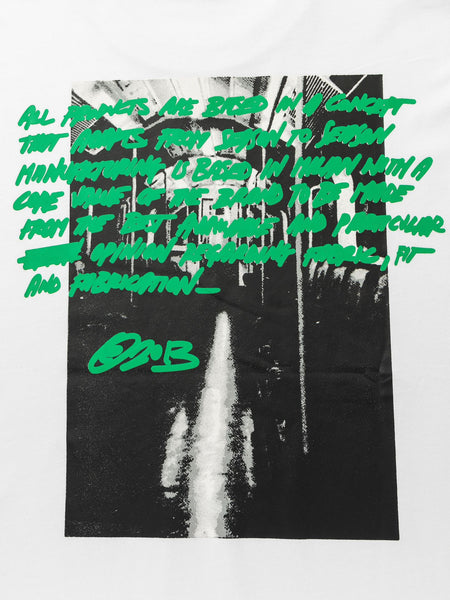 ALL PRODUCTS ARE BASED IN A CONCEPT
THAT ADAPTS FROM SEASON TO SEASON
MANUFACTURING IS BASED IN MILAN WITH A
CORE VALUE OF THE BRAND TO BE MADE
FROM THE BEST AVAILABLE AND PARTICULAR
OPINION REGARDING FABRIC, FIT
AND FABRICATION_